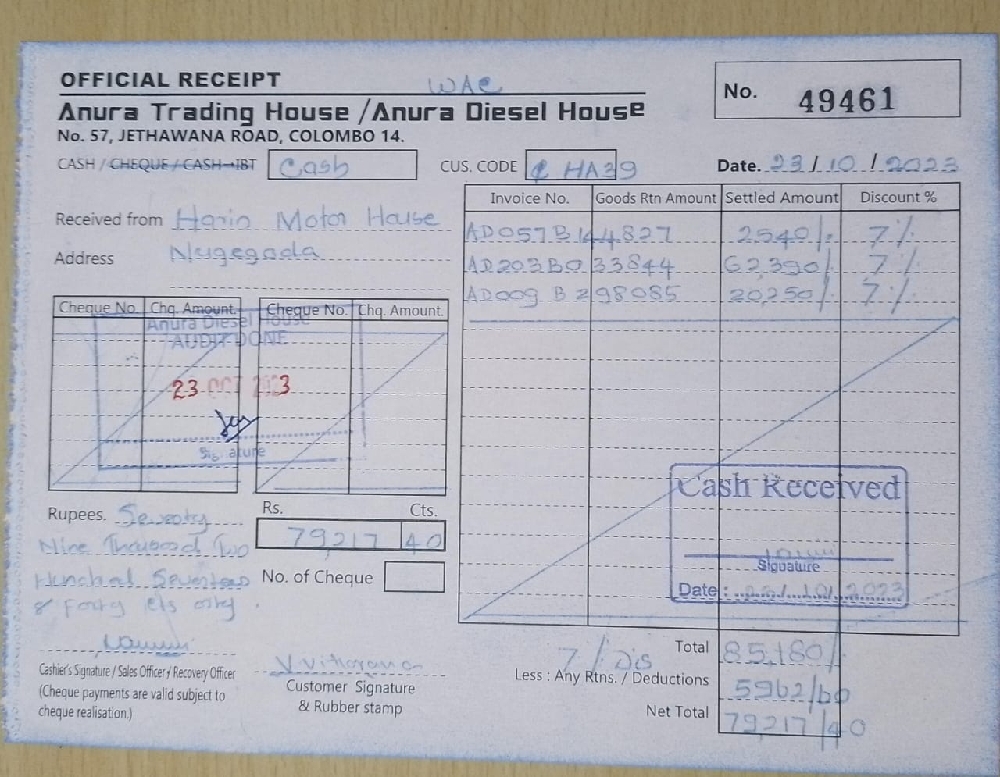 OFFICIAL RECEIPT
WAC
No. 49461
Anura Trading House / Anura Diesel House
No. 57, JETHAWANA ROAD, COLOMBO 14.
CASH / CHEQUE / CASH-IBT Cash
CUS. CODE HA39
Date. 23/10/2023
Received from Motor House
Address Nugegoda
Invoice No. Goods Rtn Amount Settled Amount Discount %
AD057B144827 2540/- 7%
AD203B033844 62,390/- 7%
AD009 B298085 20,250/- 7%
Cheque No. Chq. Amount. Cheque No. Chq. Amount.
Anura Diesel House
AUDIT DONE
23 OCT 2023
Signature
Cash Received
Signature
Date : 10/2023
Rupees. Seventy
Nine Thousand Two
Hundred Seventeen
& forty cts only.
Rs. Cts.
79,217 40
No. of Cheque
Cashier's Signature / Sales Officer / Recovery Officer
(Cheque payments are valid subject to
cheque realisation.)
Customer Signature
& Rubber stamp
7% Dis
Total 85,180/-
Less : Any Rtns. / Deductions 5962/60
Net Total 79,217/40